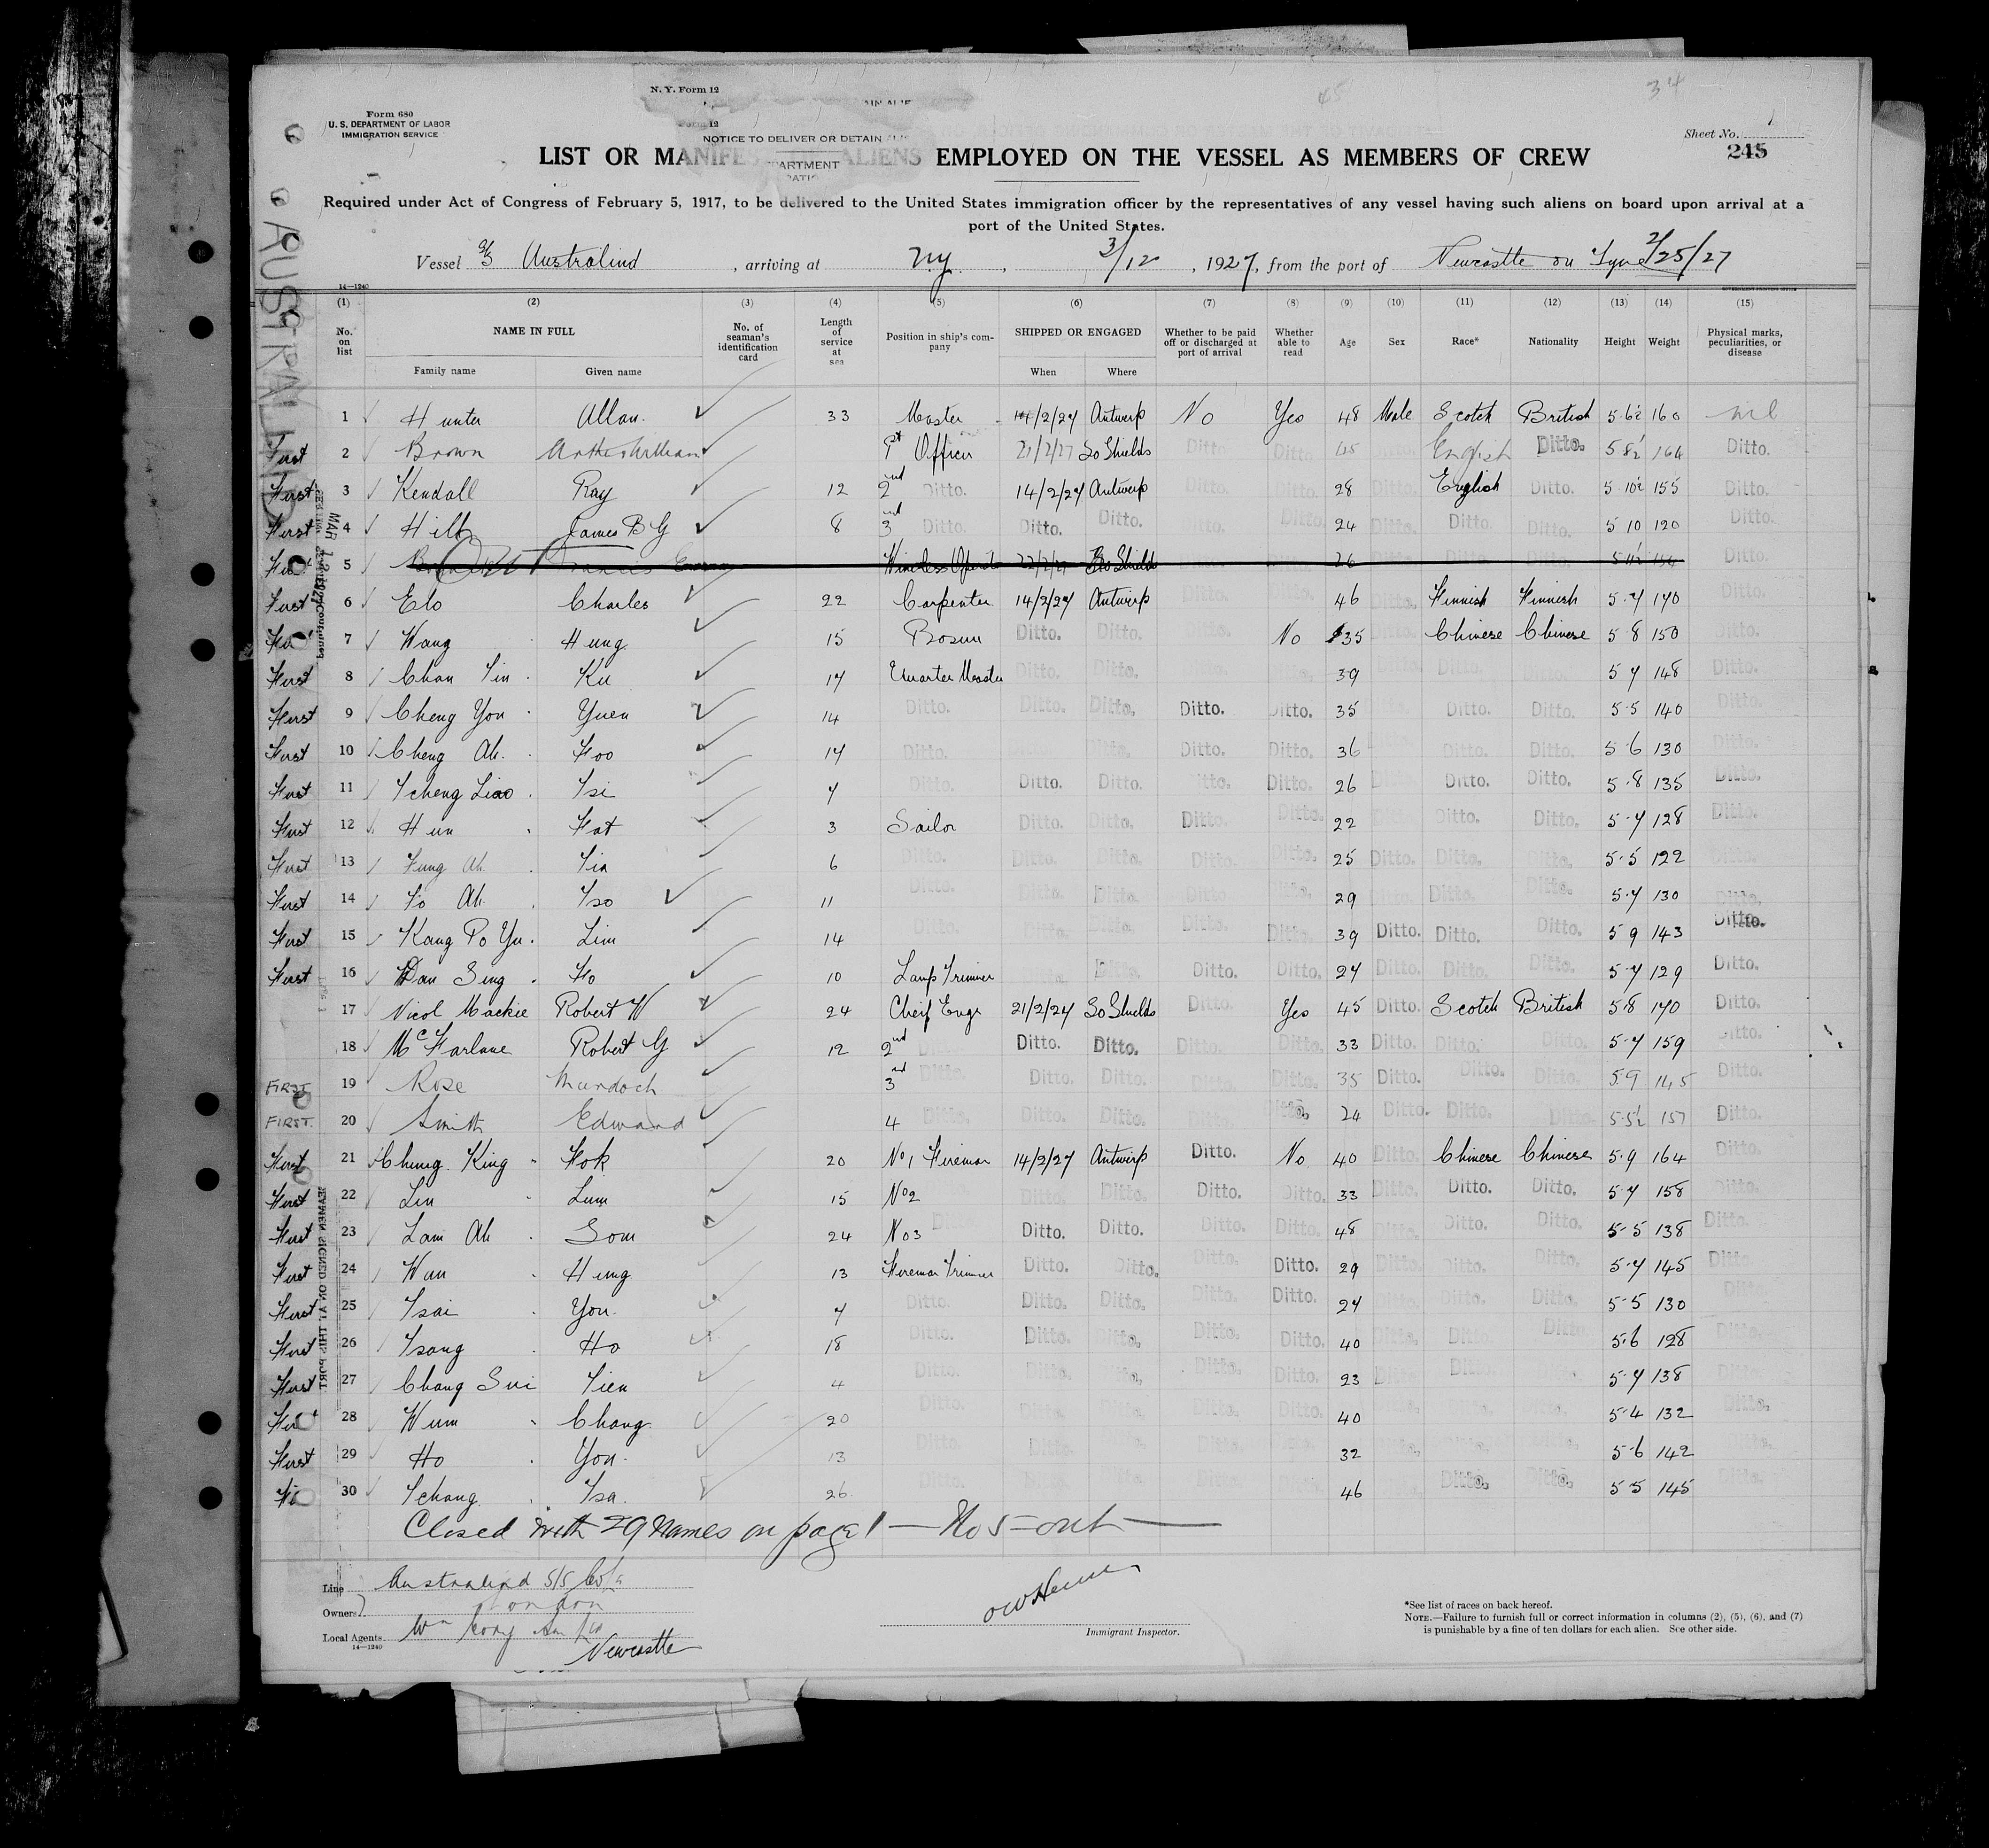 N. Y. Form 12
Form 680
U. S. DEPARTMENT OF LABOR
IMMIGRATION SERVICE
34
45
Form 12
NOTICE TO DELIVER OR DETAIN
Sheet No. 1
LIST OR MANIFES ALIENS EMPLOYED ON THE VESSEL AS MEMBERS OF CREW
245
Required under Act of Congress of February 5, 1917, to be delivered to the United States immigration officer by the representatives of any vessel having such aliens on board upon arrival at a
port of the United States.
Vessel S/S Australind, arriving at N.Y., 3/12, 1927, from the port of Newcastle on Tyne 2/25/27
AUSTRALIND
14—1240
(1) (2) (3) (4) (5) (6) (7) (8) (9) (10) (11) (12) (13) (14) (15)
No. on list NAME IN FULL No. of seaman's identification card Length of service at sea Position in ship's company SHIPPED OR ENGAGED Whether to be paid off or discharged at port of arrival Whether able to read Age Sex Race* Nationality Height Weight Physical marks, peculiarities, or disease
Family name Given name When Where
1 Hunter Allan 33 Master 14/2/27 Antwerp No Yes 48 Male Scotch British 5 6½ 160 nil
First 2 Brown 1st Officer 21/2/27 So Shields Ditto. Ditto. 45 English Ditto. 5 8½ 164 Ditto.
First 3 Kendall Ray 12 2nd Ditto. 14/2/27 Antwerp Ditto. Ditto. 28 Ditto. English Ditto. 5 10½ 155 Ditto.
First 4 Hill James B G 8 3rd Ditto. Ditto. Ditto. Ditto. Ditto. 24 Ditto. Ditto. Ditto. 5 10 120 Ditto.
First 5 Out Francis Wireless Operator 22/2/27 So Shields 26 Ditto.
First 6 Elo Charles 22 Carpenter 14/2/27 Antwerp Ditto. Ditto. 46 Ditto. Finnish Finnish 5·7 170 Ditto.
First 7 Wang Hung 15 Bosun Ditto. Ditto. Ditto. No 35 Chinese Chinese 5 8 150 Ditto.
First 8 Chan Yin Ku 17 Quarter Master Ditto. Ditto. 39 Ditto. Ditto. 5 7 148 Ditto.
First 9 Cheng You Yuen 14 Ditto. Ditto. Ditto. Ditto. Ditto. 35 Ditto. Ditto. 5·5 140 Ditto.
First 10 Cheng Ah Foo 17 Ditto. Ditto. Ditto. Ditto. 36 Ditto. Ditto. 5·6 130 Ditto.
First 11 Tcheng Liao Tsi 7 Ditto. Ditto. Ditto. Ditto. Ditto. 26 Ditto. Ditto. 5·8 135 Ditto.
First 12 Hun Fat 3 Sailor Ditto. Ditto. Ditto. Ditto. 22 Ditto. Ditto. 5·7 128 Ditto.
First 13 Fung Ah Tia 6 Ditto. Ditto. Ditto. Ditto. Ditto. 25 Ditto. Ditto. Ditto. 5·5 122
First 14 Yo Ah Tso 11 Ditto. Ditto. Ditto. Ditto Ditto. 29 Ditto. Ditto. 5·7 130 Ditto.
First 15 Kang Po Yu Lim 14 Ditto. Ditto. Ditto. Ditto. 39 Ditto. Ditto. Ditto. 5 9 143 Ditto.
First 16 Dan Sing Ho 10 Lamp Trimmer Ditto. Ditto. Ditto. 27 Ditto. Ditto. Ditto. 5·7 129 Ditto.
17 Nicol Mackie Robert W 24 Cheif Engr 21/2/27 So Shields Ditto. Yes 45 Ditto. Scotch British 5·8 170 Ditto.
18 McFarlane Robert G 12 2nd Ditto. Ditto. Ditto. Ditto. Ditto. 33 Ditto. Ditto. Ditto. 5·7 159 Ditto.
FIRST 19 Rose Murdoch 3rd Ditto. Ditto. Ditto. Ditto. Ditto. 35 Ditto. Ditto. Ditto. 5 9 145 Ditto.
FIRST 20 Smith Edward 4 Ditto. Ditto. Ditto. Ditto. Ditto. 24 Ditto. Ditto. Ditto. 5·5½ 157 Ditto.
First 21 Cheung King Fok 20 No 1 Fireman 14/2/27 Antwerp Ditto. No 40 Ditto. Chinese Chinese 5·9 164 Ditto.
First 22 Lin Lum 15 No 2 Ditto. Ditto. Ditto. Ditto. 33 Ditto. Ditto. Ditto. 5·7 158 Ditto.
First 23 Lam Ah Som 24 No 3 Ditto. Ditto. Ditto. Ditto. Ditto. 48 Ditto. Ditto. 5·5 138 Ditto.
First 24 Wan Hung 13 Fireman Trimmer Ditto. Ditto. Ditto. Ditto. 29 Ditto. Ditto. Ditto. 5·7 145 Ditto.
First 25 Tsai You 7 Ditto. Ditto. Ditto. Ditto. Ditto. 27 Ditto. Ditto. Ditto. 5·5 130 Ditto.
First 26 Tsang Ho 18 Ditto. Ditto. Ditto. Ditto. Ditto. 40 Ditto. Ditto. Ditto. 5·6 128 Ditto.
First 27 Chang Sui Tien 4 Ditto. Ditto. Ditto. Ditto. Ditto. 23 Ditto. Ditto. Ditto. 5·7 138 Ditto.
First 28 Wum Chang 20 Ditto. Ditto. Ditto. Ditto. Ditto. 40 Ditto. Ditto. 5·4 132 Ditto.
First 29 Ho You 13 Ditto. Ditto. Ditto. Ditto. 32 Ditto. Ditto. Ditto. 5·6 142 Ditto.
30 Tchang Tsa 26 Ditto. Ditto. Ditto. Ditto. 46 Ditto. Ditto. 5·5 145 Ditto.
Closed with 29 names on page 1 — No 5 — out —
SEAMEN SIGNED ON AT THIS PORT
Line Australind S/S Co
Owners London
Local Agents Wm Cory
14—1240
Newcastle
Immigrant Inspector.
*See list of races on back hereof.
NOTE.—Failure to furnish full or correct information in columns (2), (5), (6), and (7)
is punishable by a fine of ten dollars for each alien. See other side.